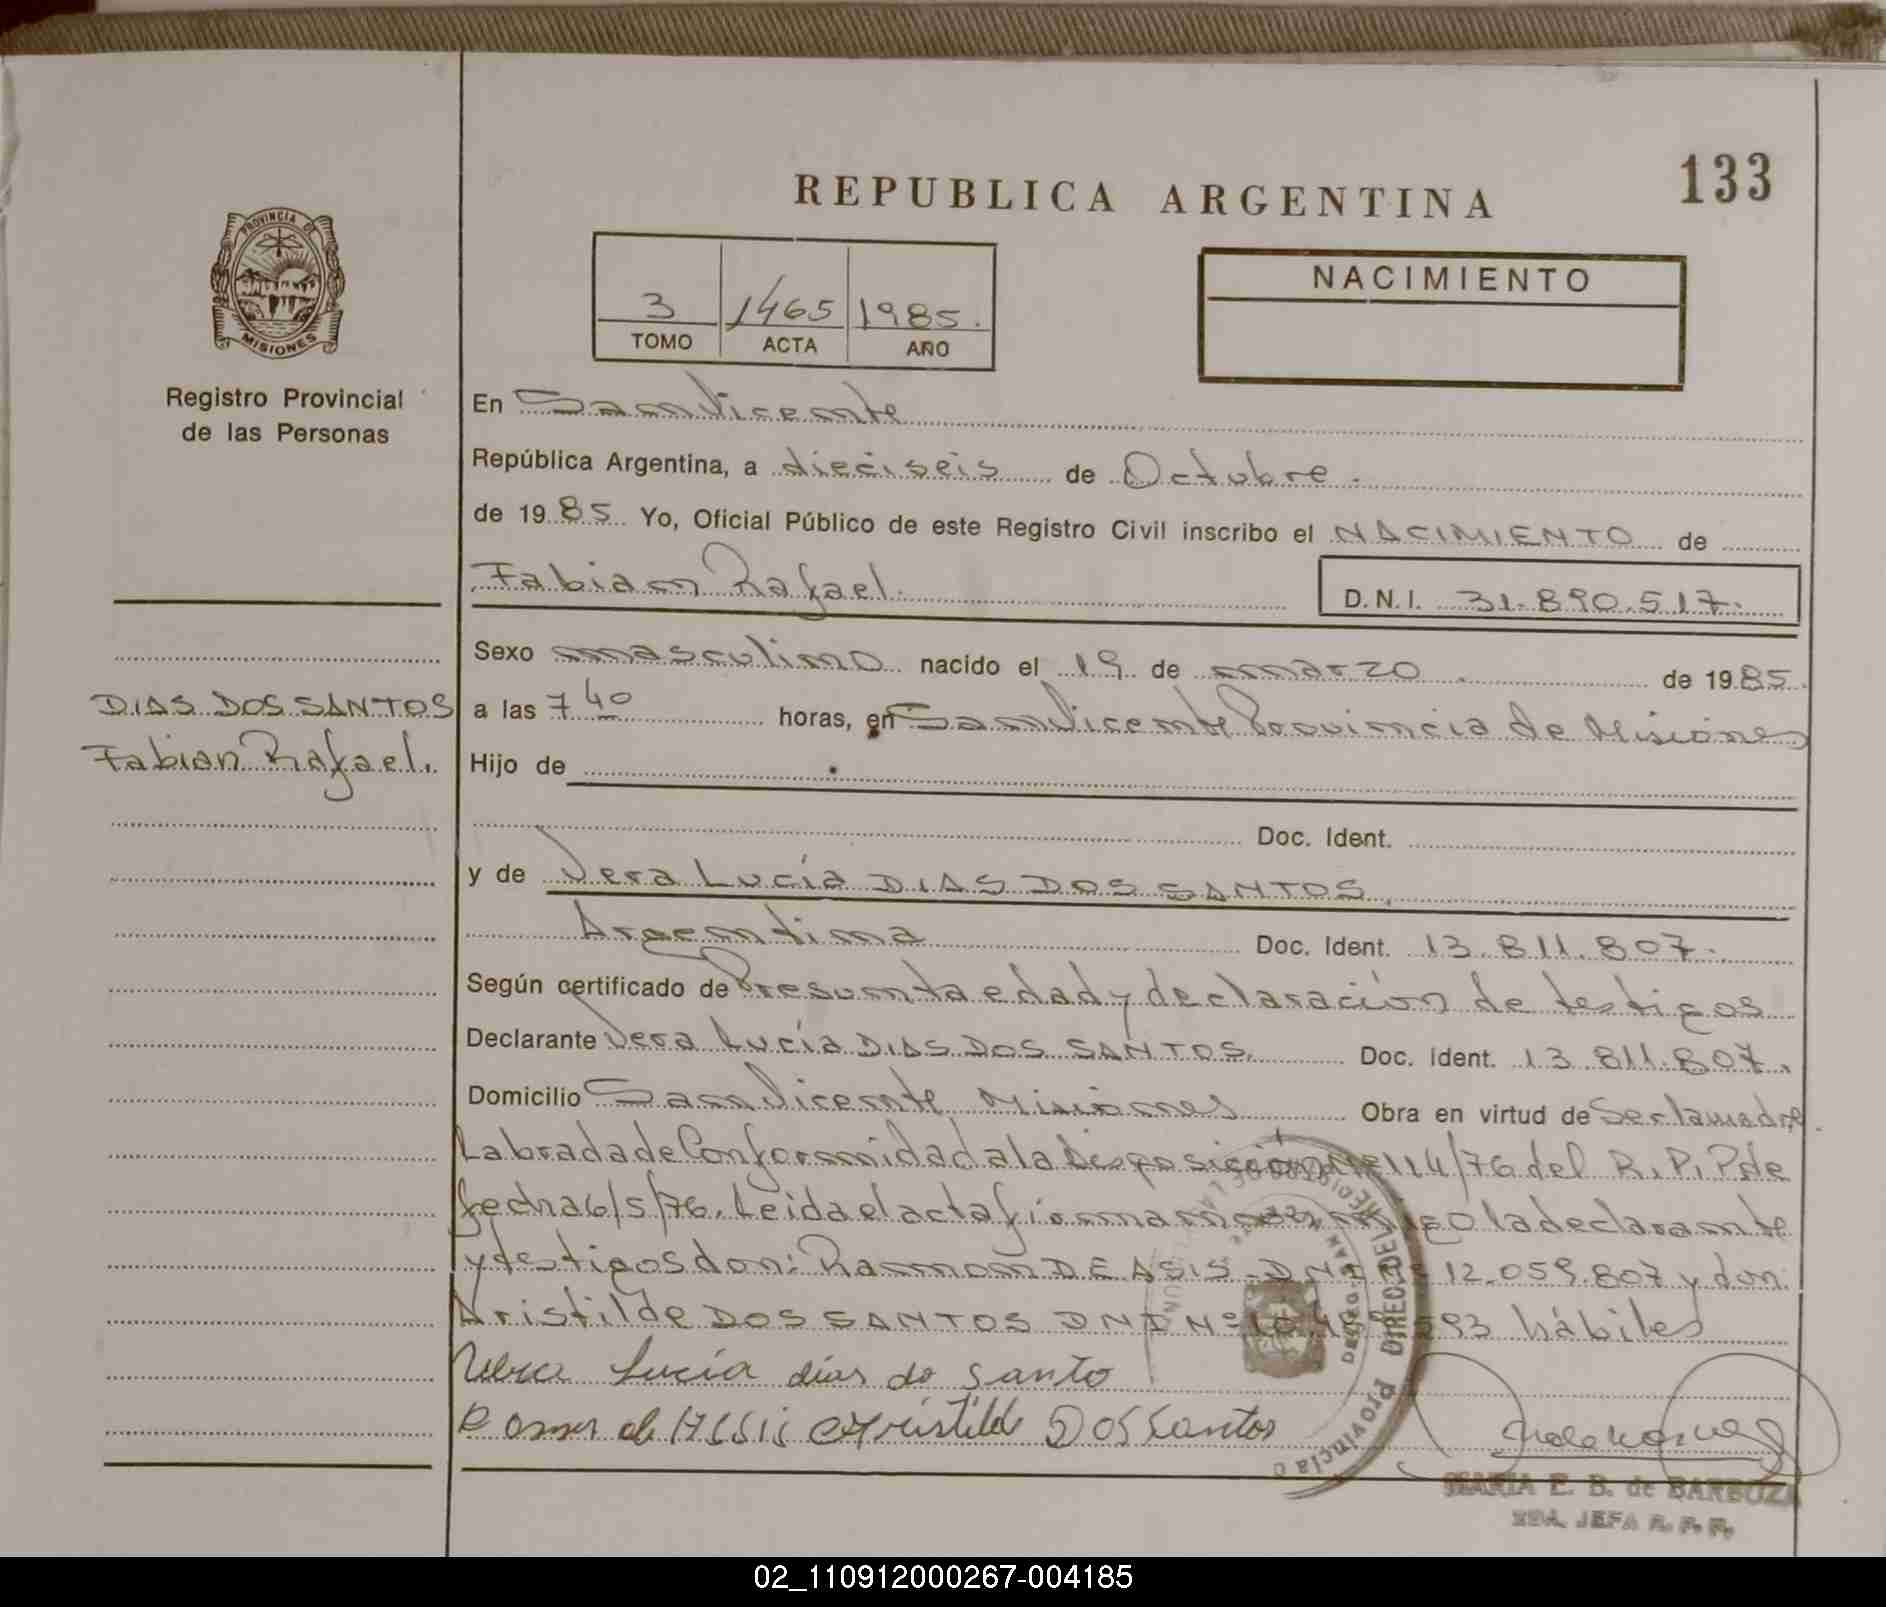 REPUBLICA ARGENTINA
133
PROVINCIA DE
MISIONES
Registro Provincial
de las Personas
3 1465 1985.
TOMO ACTA AÑO
NACIMIENTO
En San Vicente
República Argentina, a dieciseis de Octubre.
de 1985 Yo, Oficial Público de este Registro Civil inscribo el NACIMIENTO de
Fabian Rafael. D.N.I. 31.890.517.
Sexo masculino nacido el 19 de marzo de 1985.
DIAS DOS SANTOS
Fabian Rafael.
a las 7 40 horas, en San Vicente Provincia de Misiones
Hijo de
Doc. Ident.
y de Vera Lucía DIAS DOS SANTOS,
Argentina Doc. Ident. 13.811.807.
Según certificado de Presunta edad y declaración de testigos
Declarante Vera Lucía DIAS DOS SANTOS. Doc. Ident. 13.811.807.
Domicilio San Vicente Misiones Obra en virtud de Ser la madre.
Labrada de Conformidad a la Disposición Nº 114/76 del R.P.P de
fecha 6/5/76. Leida el acta firman conmigo la declarante
y testigos don: Ramon DE ASIS - DNI Nº 12.059.807 y don:
Aristilde DOS SANTOS DNI Nº 593 hábiles
Vera Lucía dias do Santo
Aristilde Dos Santos
Provincia DIREC. DEL
MARIA E. B. de BARBOZA
2DA. JEFA R. P. P.
02_110912000267-004185